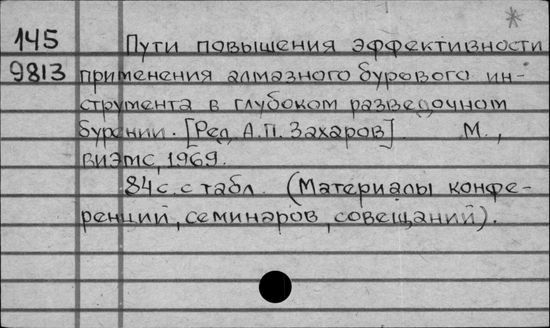 *
145 Пути повышения эффективности
9813 применения алмазного бурового ин-
струмента в глубоком разведочном
бурении. [Ред. А.П. Захаров] М.,
ВИЭМС, 1969.
84 с. с табл. (Материалы конфе-
ренций, семинаров, совещаний).